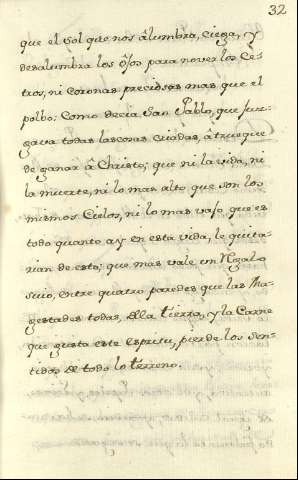 32
que el Sol que nos alumbra, ciega, y
deslumbra los ojos para no ver los Ce-
tros, ni coronas preciosas mas que el
polbo: como decia San Pablo, que juz-
gava todas las cosas criadas, á trueque
de ganar â Christo; que ni la vida, ni
la muerte, ni lo mas alto que son los
mismos Cielos, ni lo mas vajo que es
todo quanto ay en esta vida, le quita-
rian de esto; que mas vale un
suio, entre quatro paredes que las Ma-
gestades todas, dla tierra, y la Carne
que gusta este espiritu, pierde los Sen-
tidos de todo lo terreno.